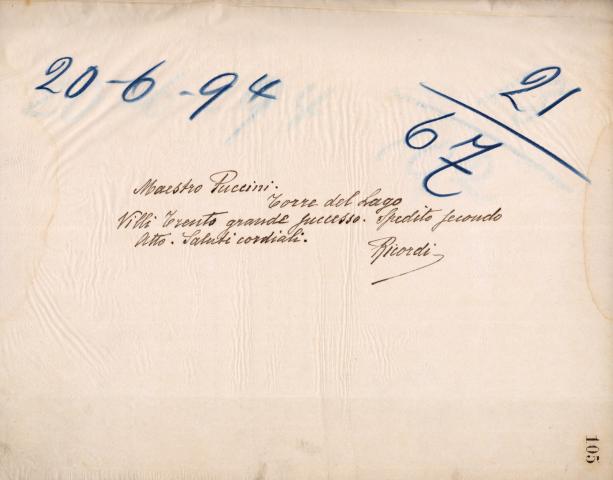 20-6-94
21/67
Maestro Puccini.
Torre del Lago
Villi Trento grande successo. Spedito secondo
Atto. Saluti cordiali.
Ricordi
105